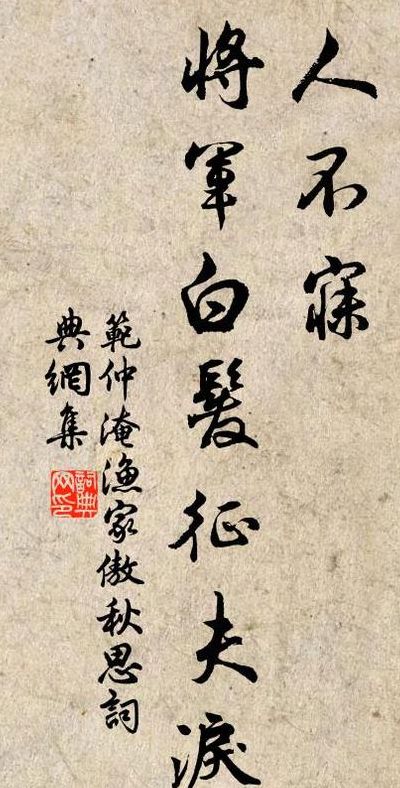 人不寐
將軍白髮征夫淚
範仲淹漁家傲秋思詞
典網集
詞典
网印